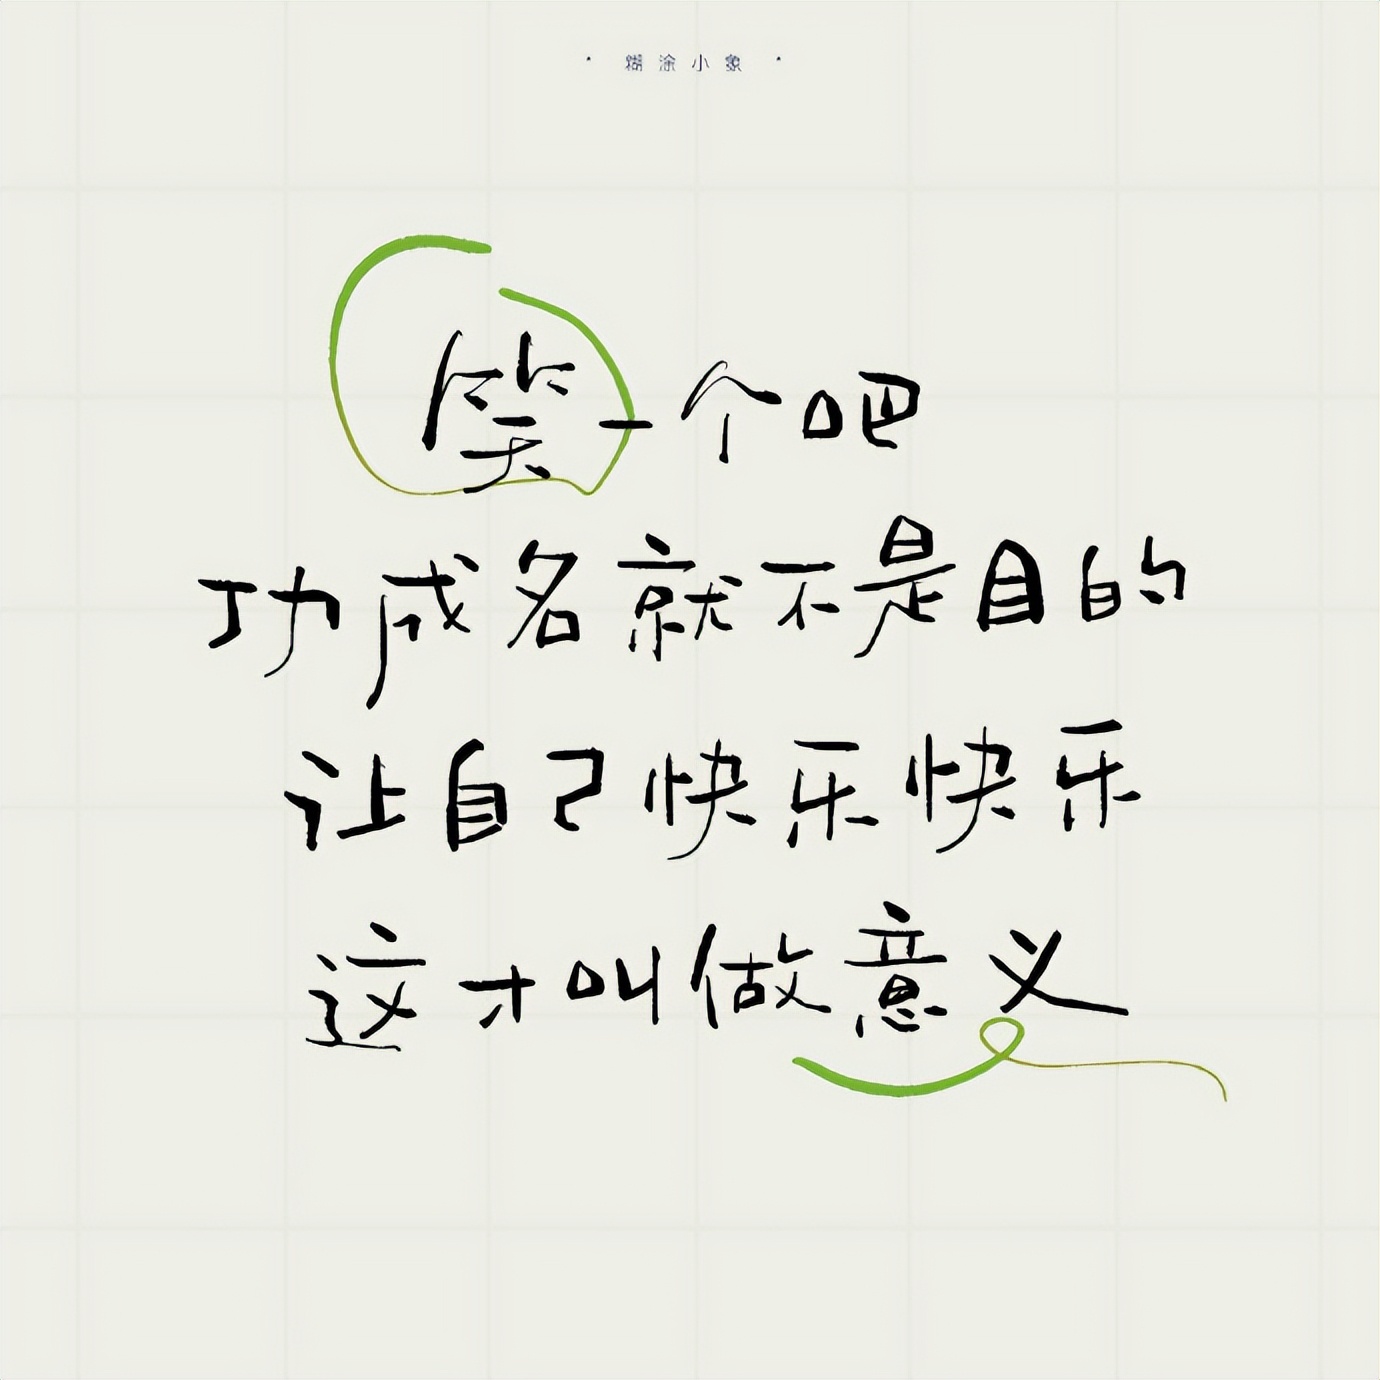 · 糊涂小象 ·
笑一个吧
功成名就不是目的
让自己快乐快乐
这才叫做意义